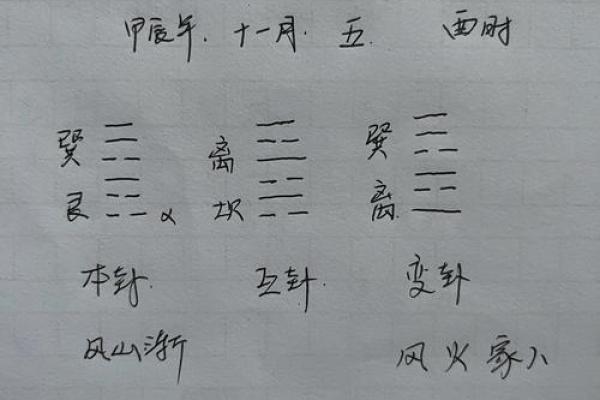 甲辰年. 十一月. 五. 酉时
巽 离 巽
艮 x 坎 离.
本卦. 互卦. 变卦
风山渐 风火家人